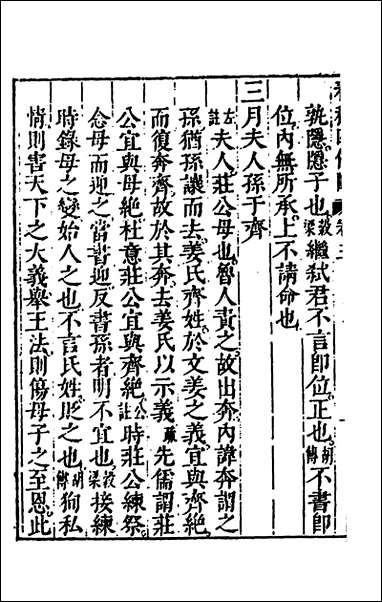 孰隱隱子也穀梁繼弑君不言即位正也胡傳不書即
位內無所承上不請命也
三月夫人孫于齊
左註夫人莊公母也魯人責之故出奔內諱奔謂之
孫猶孫讓而去姜氏齊姓於文姜之義宜與齊絶
而復奔齊故於其奔去姜氏以示義疏先儒謂莊
公宜與母絶杜意莊公宜與齊絶公註時莊公練祭
念母而迎之當書迎反書孫者明不宜也穀梁接練
時錄母之變始人之也不言氏姓貶之也胡傳狥私
情則害天下之大義舉王法則傷母子之至恩此